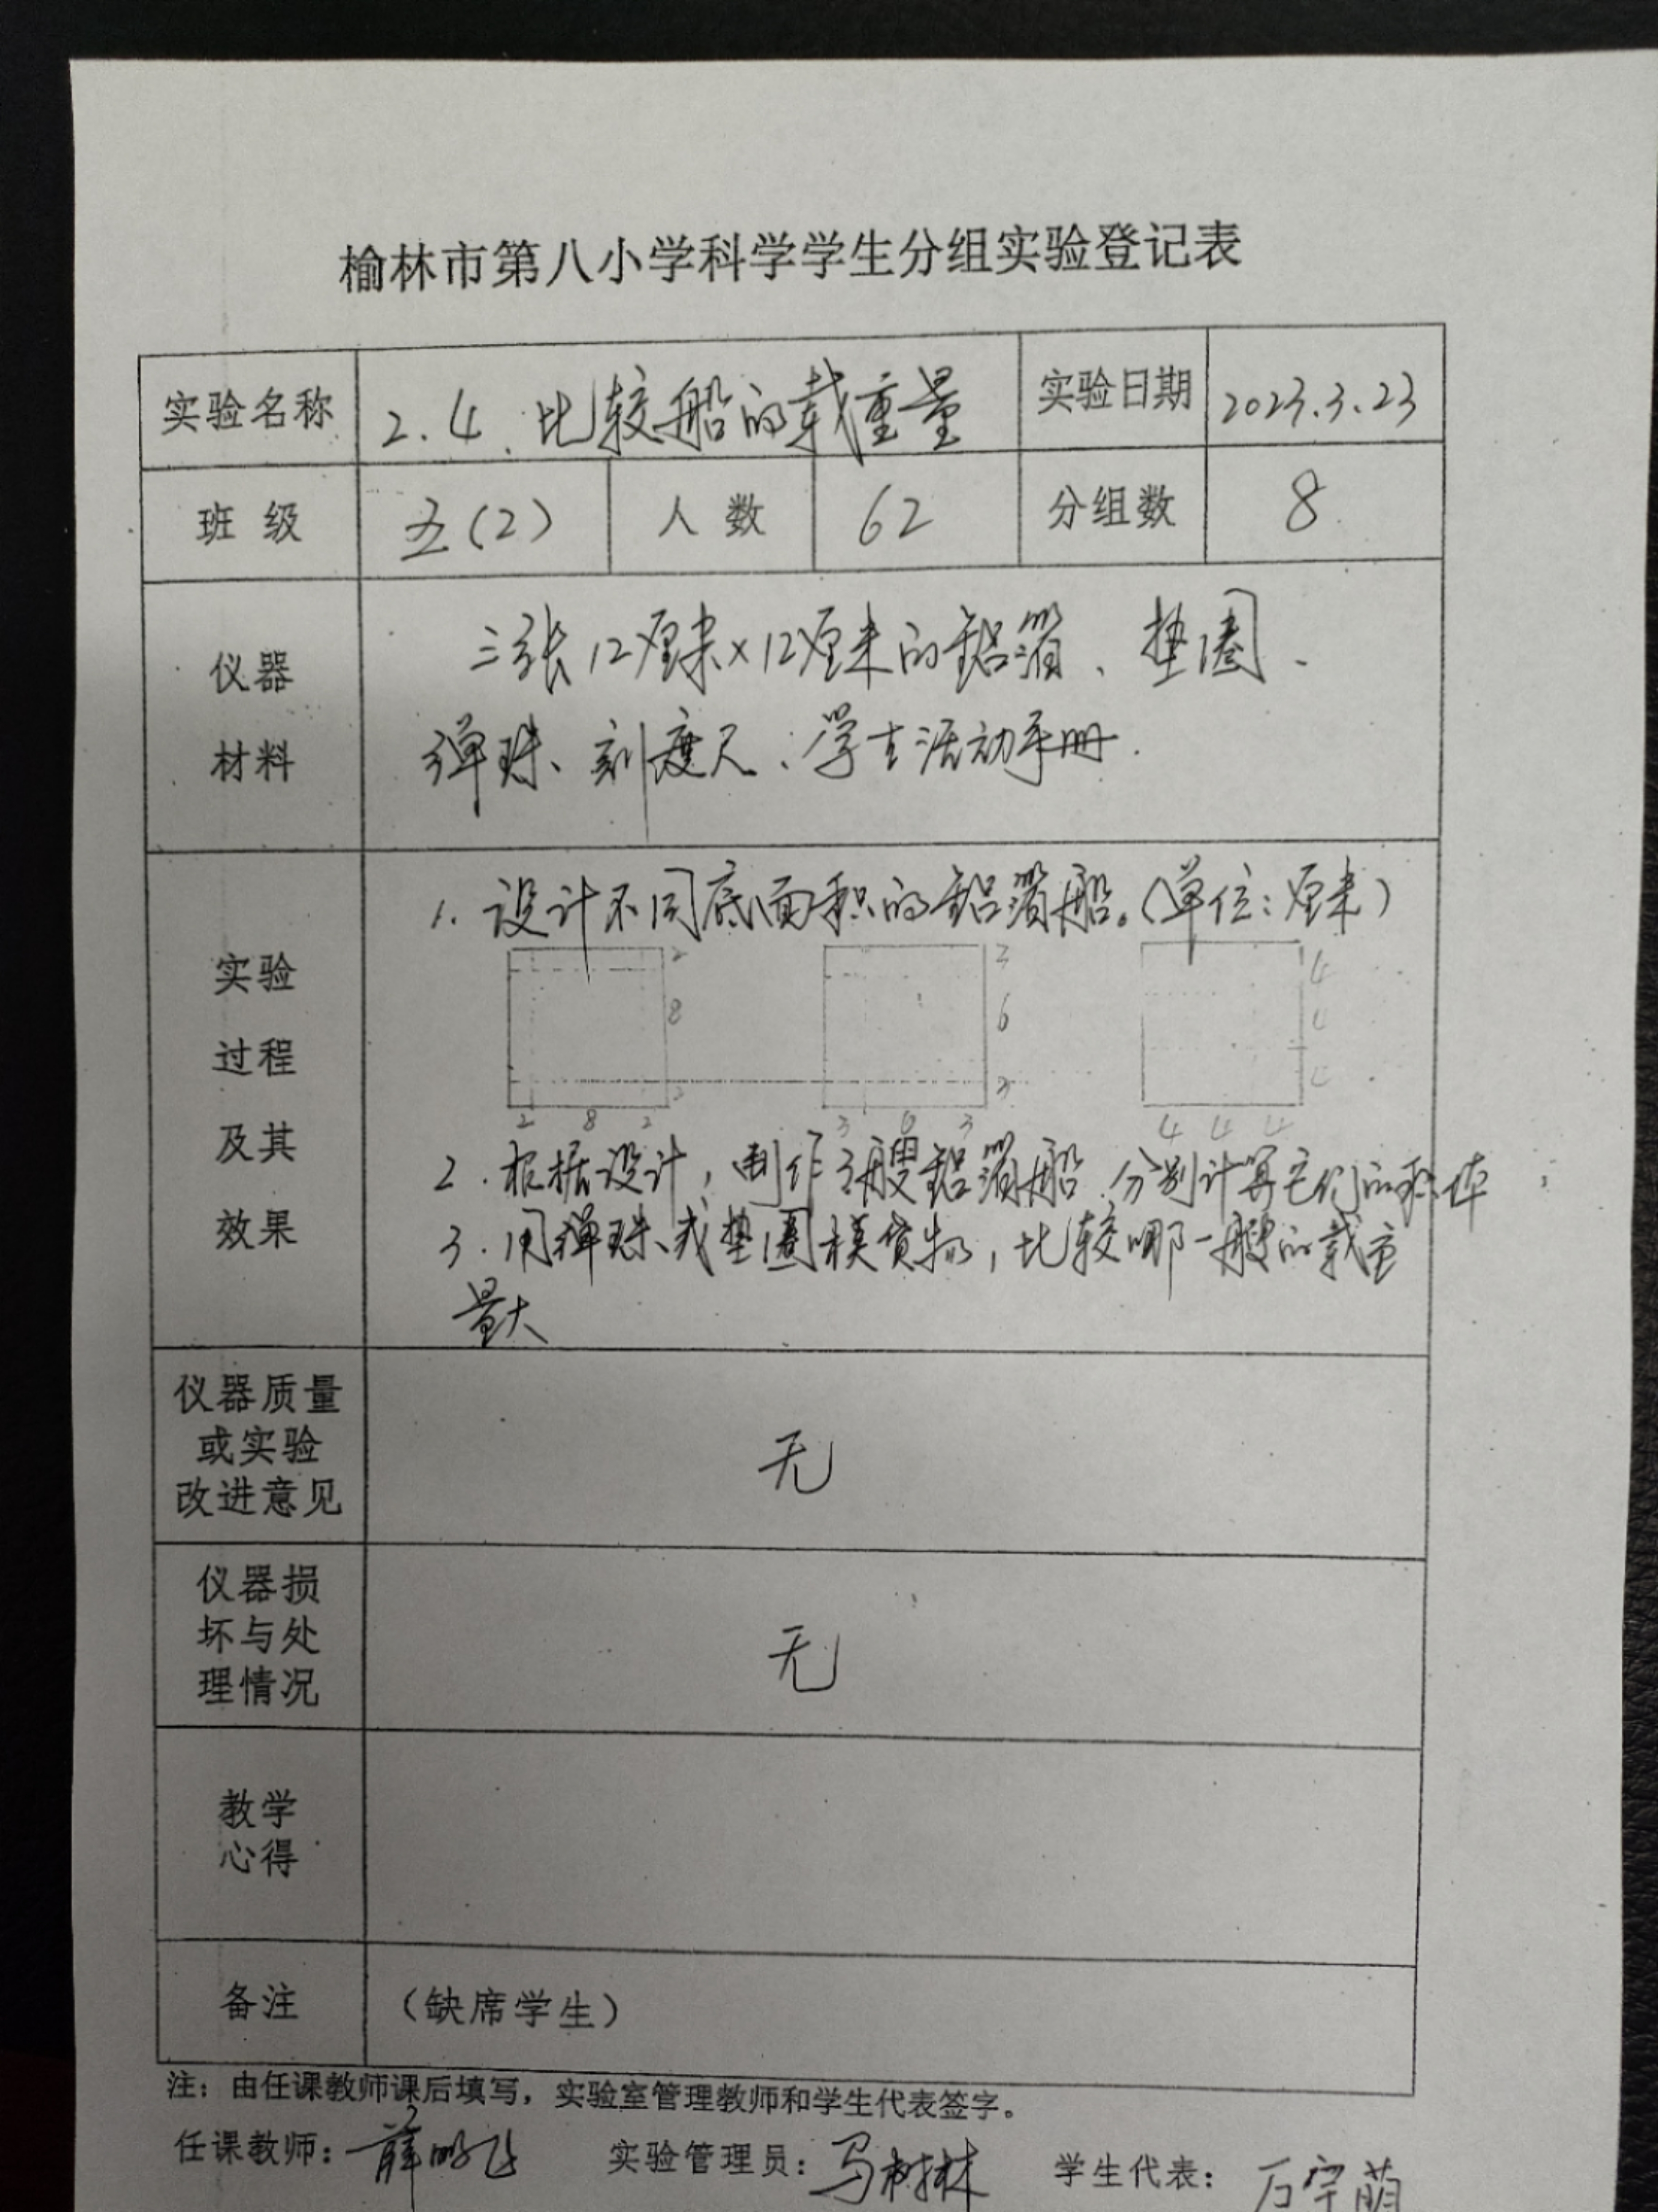 榆林市第八小学科学学生分组实验登记表
实验名称 2.4.比较船的载重量 实验日期 2023.3.23
班级 五(2) 人数 62 分组数 8
仪器
材料
三张12厘米×12厘米的铝箔、垫圈、
弹珠、刻度尺、学生活动手册.
实验
过程
及其
效果
1.设计不同底面积的铝箔船。(单位:厘米)
2 3 4
8 6 4
2 3 4
2 8 2 3 6 3 4 4 4
2.根据设计,制作3艘铝箔船.分别计算它们的积体
3.用弹珠、或垫圈模货物,比较哪一艘的载重
量大
仪器质量
或实验
改进意见
无
仪器损
坏与处
理情况
无
教学
心得
备注 (缺席学生)
注:由任课教师课后填写,实验室管理教师和学生代表签字。
任课教师: 薛 飞 实验管理员:马树林 学生代表: 万宇萌